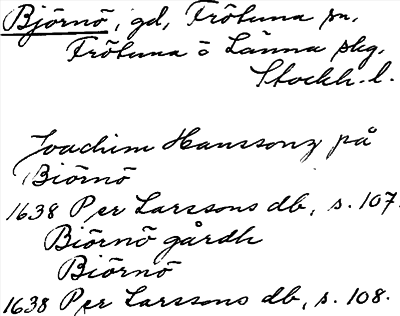 Björnö, gd, Frötuna sn,
Frötuna o Länna skg,
Stockh. l.
Joachim Hanssonz på
Biörnö
1638 Per Larssons db, s. 107.
Biörnö gårdh
Biörnö
1638 Per Larssons db, s. 108.